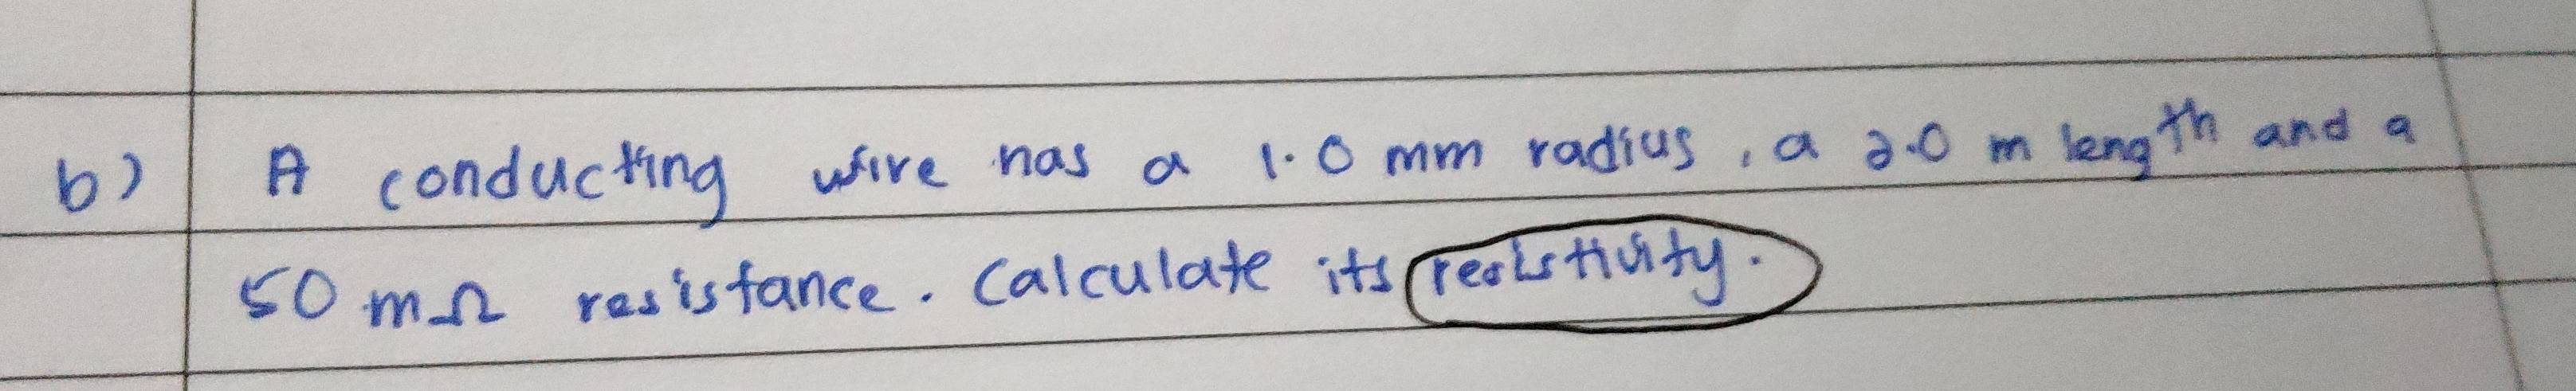 b) A conducting wire has a 1.0 mm radius, a 2.0 m length and a
50 mΩ resistance. Calculate its resistivity.